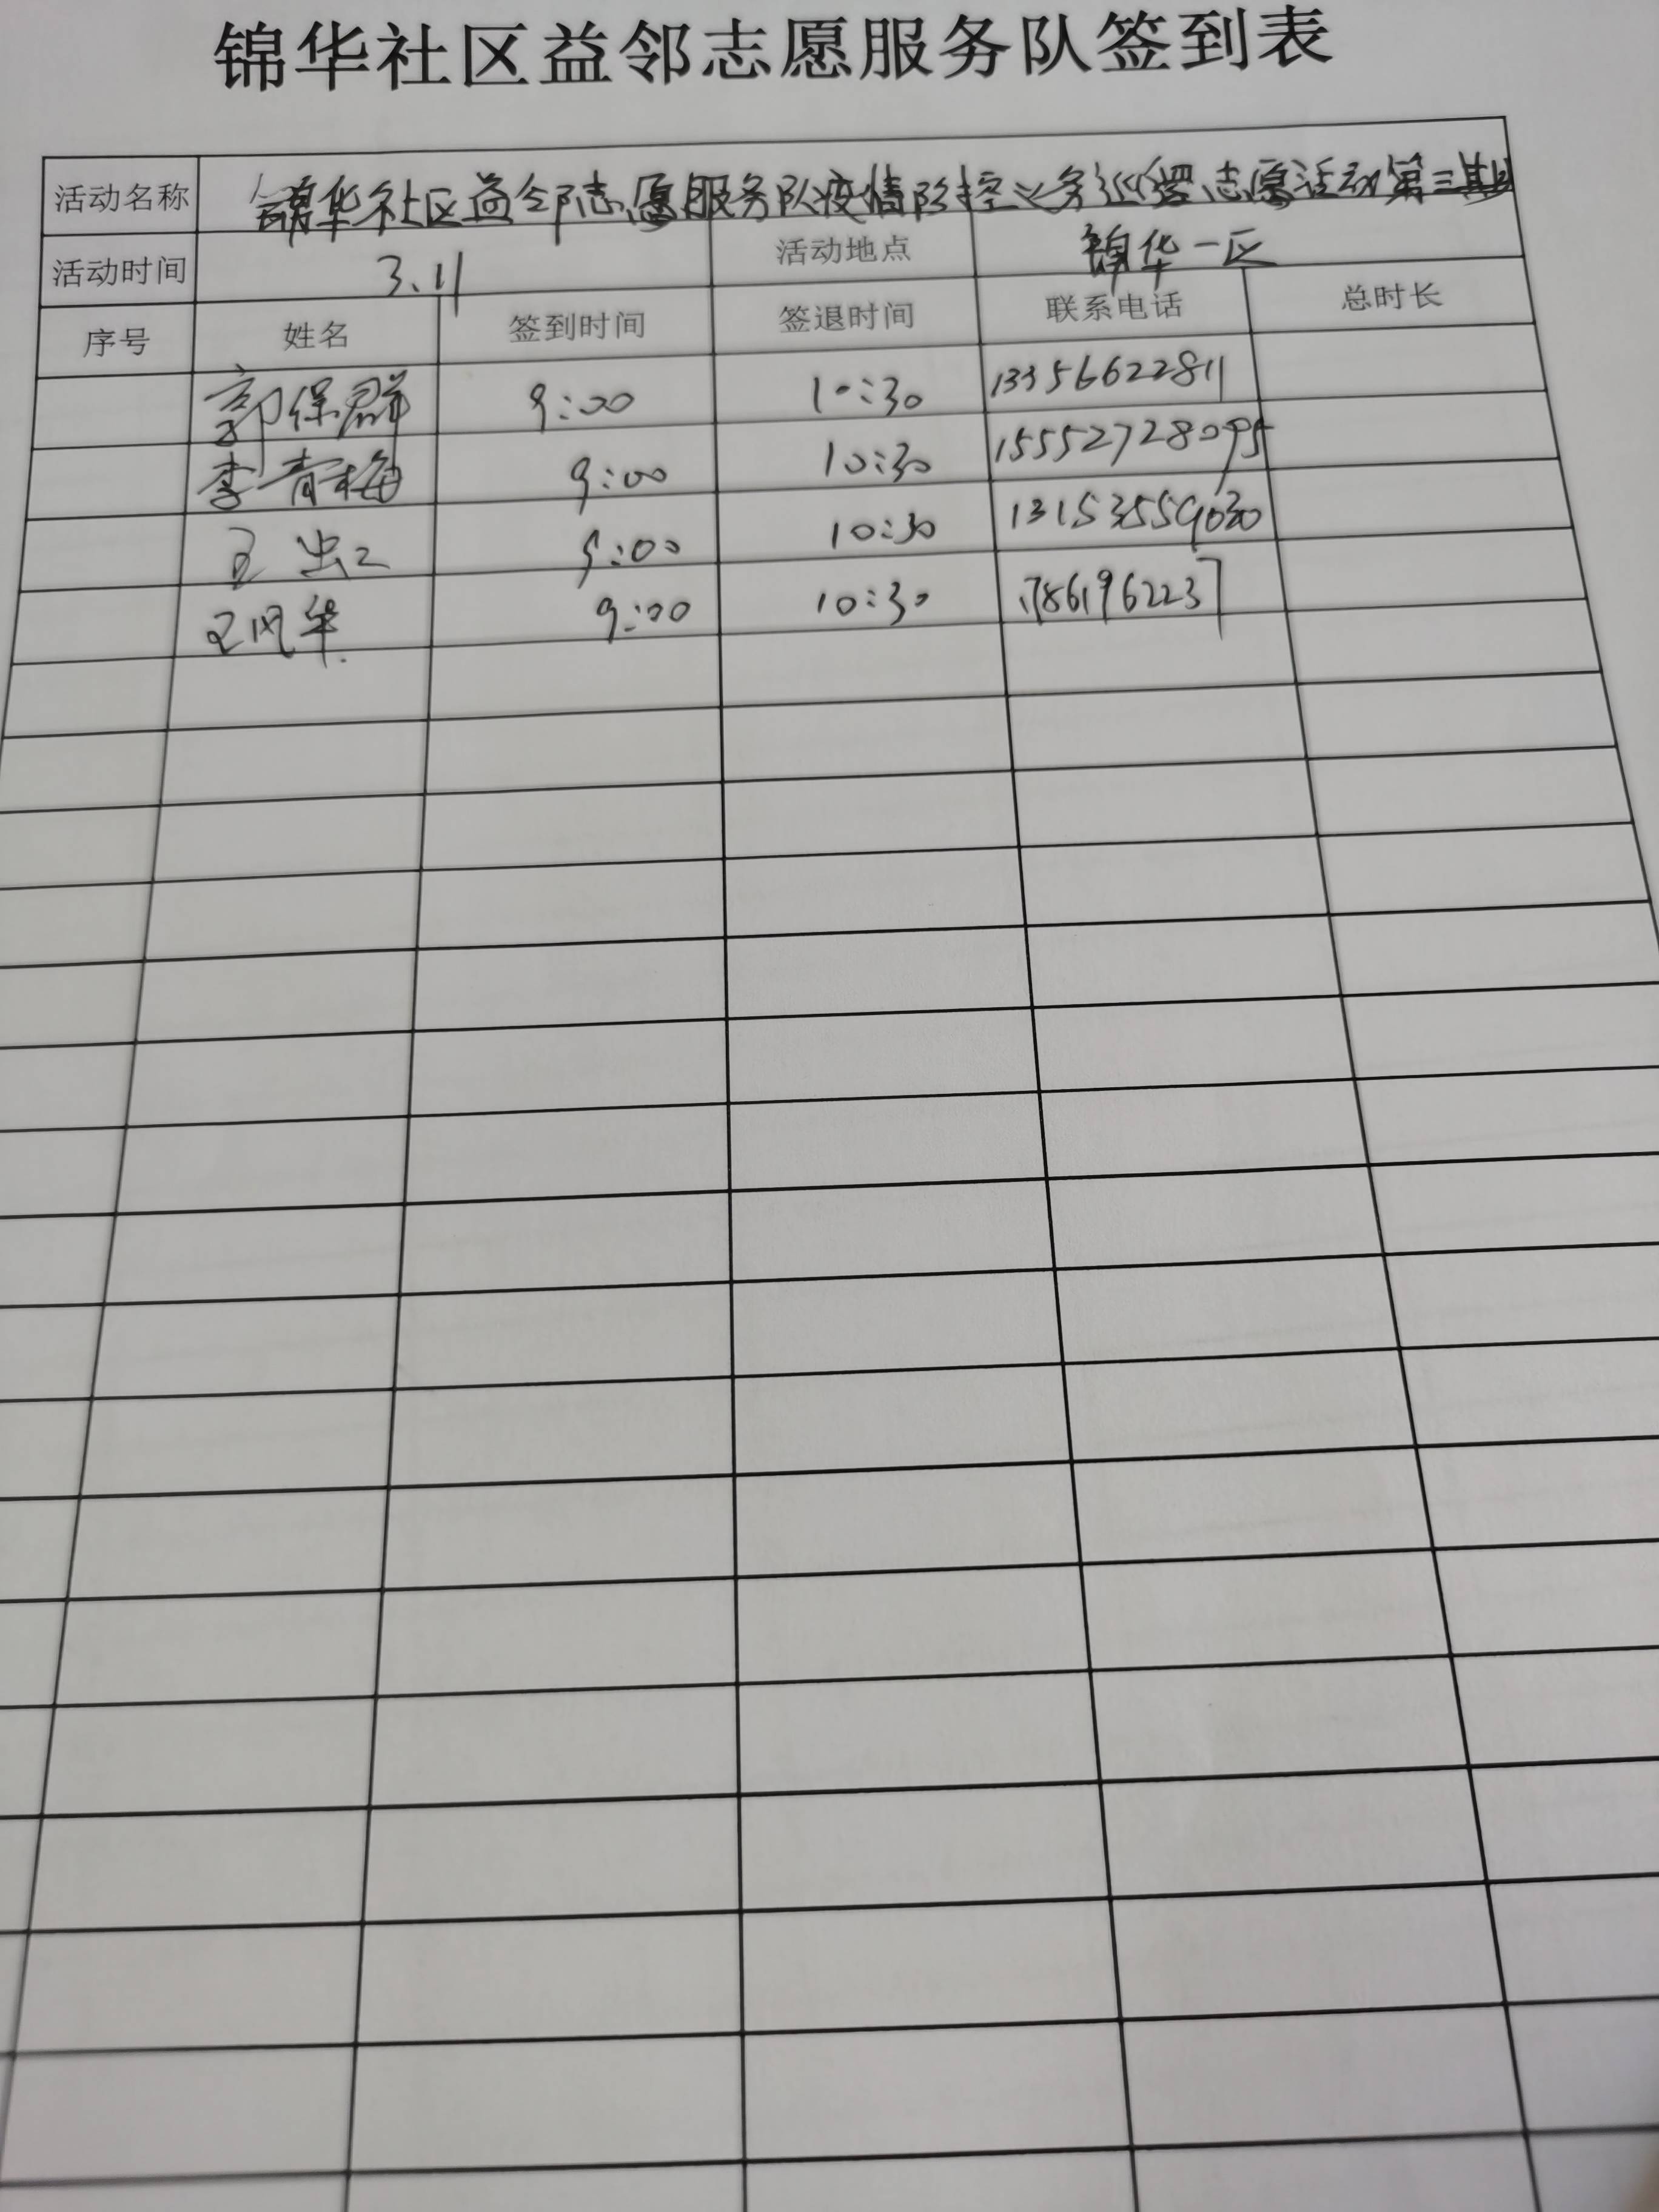 锦华社区益邻志愿服务队签到表
活动名称 锦华社区益邻志愿服务队疫情防控义务巡逻志愿活动第三期
活动时间 3.11 活动地点 锦华一区
序号 姓名 签到时间 签退时间 联系电话 总时长
郭保群 9:00 10:30 13356622811
李青梅 9:00 10:30 15552728095
9:00 10:30 13153559030
王风华 9:00 10:30 17861962237